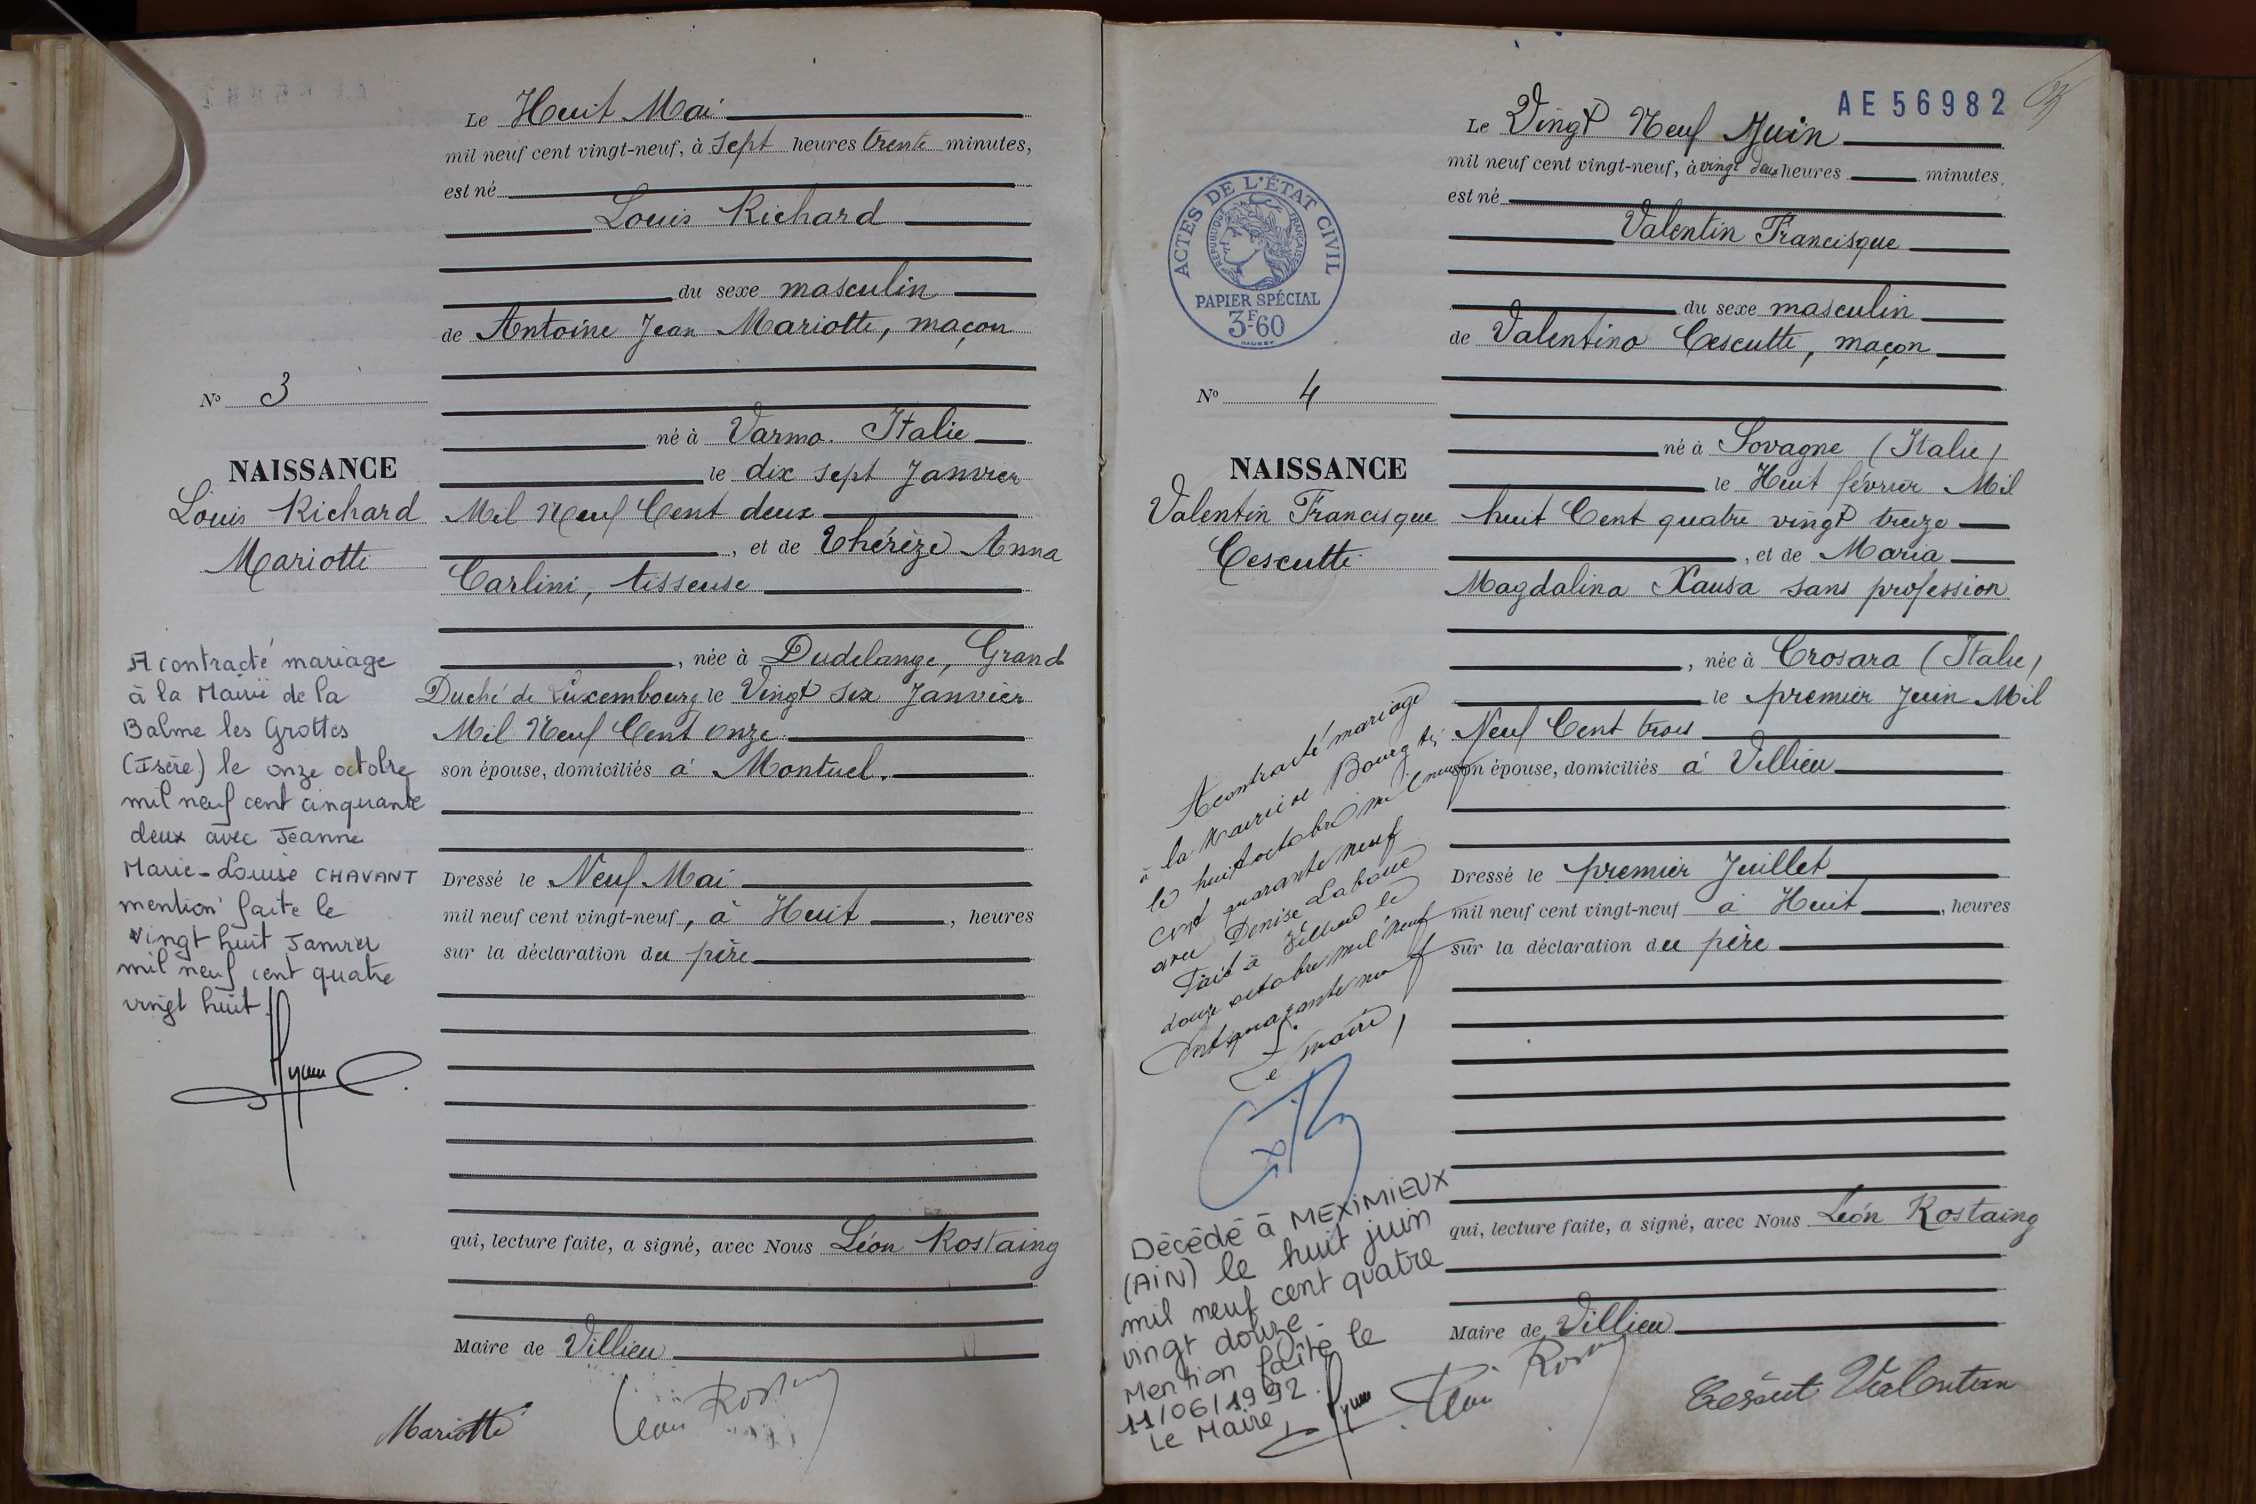 Le Huit Mai
mil neuf cent vingt-neuf, à sept heures trente minutes,
est né
Louis Richard
du sexe masculin
de Antoine Jean Mariotti, maçon
né à Varmo. Italie
le dix sept Janvier
Mil Neuf Cent deux
, et de Thérèze Anna
Carlini, tisseuse
, née à Dudelange, Grand
Duché de Luxembourg le Vingt six Janvier
Mil Neuf Cent onze
son épouse, domiciliés à Montuel.
Dressé le Neuf Mai
mil neuf cent vingt-neuf, à Huit , heures
sur la déclaration du père
qui, lecture faite, a signé, avec Nous Léon Rostaing
Maire de Villieu
Mariotti
Léon Rostaing
No 3
NAISSANCE
Louis Richard
Mariotti
A contracté mariage
à la Mairie de la
Balme les Grottes
(Isère) le onze octobre
mil neuf cent cinquante
deux avec Jeanne
Marie-Louise CHAVANT
mention faite le
vingt huit Janvier
mil neuf cent quatre
vingt huit.
AE 56982
Le Vingt Neuf Juin
mil neuf cent vingt-neuf, à vingt deux heures minutes.
est né
Valentin Francisque
du sexe masculin
de Valentino Cescutti, maçon
né à Sovagne (Italie)
le Huit février Mil
huit Cent quatre vingt treize
, et de Maria
Magdalina Xausa sans profession
, née à Crosara (Italie)
le premier Juin Mil
Neuf Cent trois
son épouse, domiciliés à Villieu
Dressé le premier Juillet
mil neuf cent vingt-neuf à Huit , heures
sur la déclaration du père
qui, lecture faite, a signé, avec Nous Léon Rostaing
Maire de Villieu
Léon Rostaing
Valentin
ACTES DE L'ÉTAT CIVIL
RÉPUBLIQUE FRANÇAISE
PAPIER SPÉCIAL
3F.60
No 4
NAISSANCE
Valentin Francisque
Cescutti
A contracté mariage
à la Mairie de Bourg
le huit octobre mil neuf
cent quarante neuf
avec Denise
Fait à Villieu le
douze octobre mil neuf
cent quarante neuf
Le maire,
Décédé à MEXIMIEUX
(AIN) le huit juin
mil neuf cent quatre
vingt douze.
Mention faîte le
11/06/1992.
Le Maire,